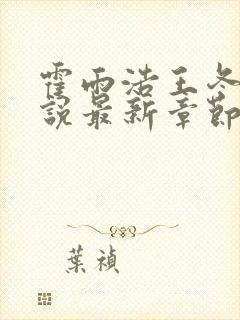 霍雨浩王冬
說最新章節
葉禎